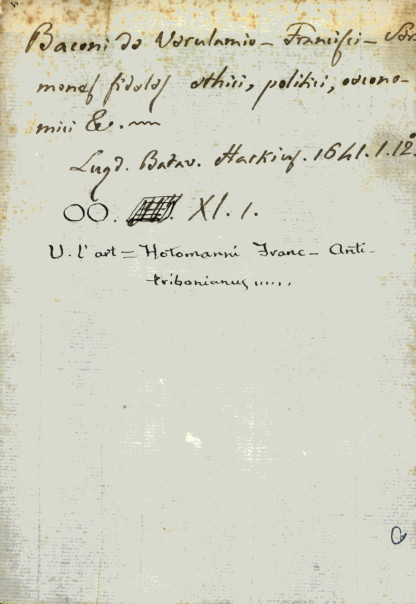 Baconi de Verulamio – Francisci – Ser
mones fideles ethici, politici, oecono-
mici &.
Lugd. Batav. Hackius. 1641. 1. 12.º
OO. XI. 1.
V. l'art = Hotomanni Franc – Anti-
tribonianus .....